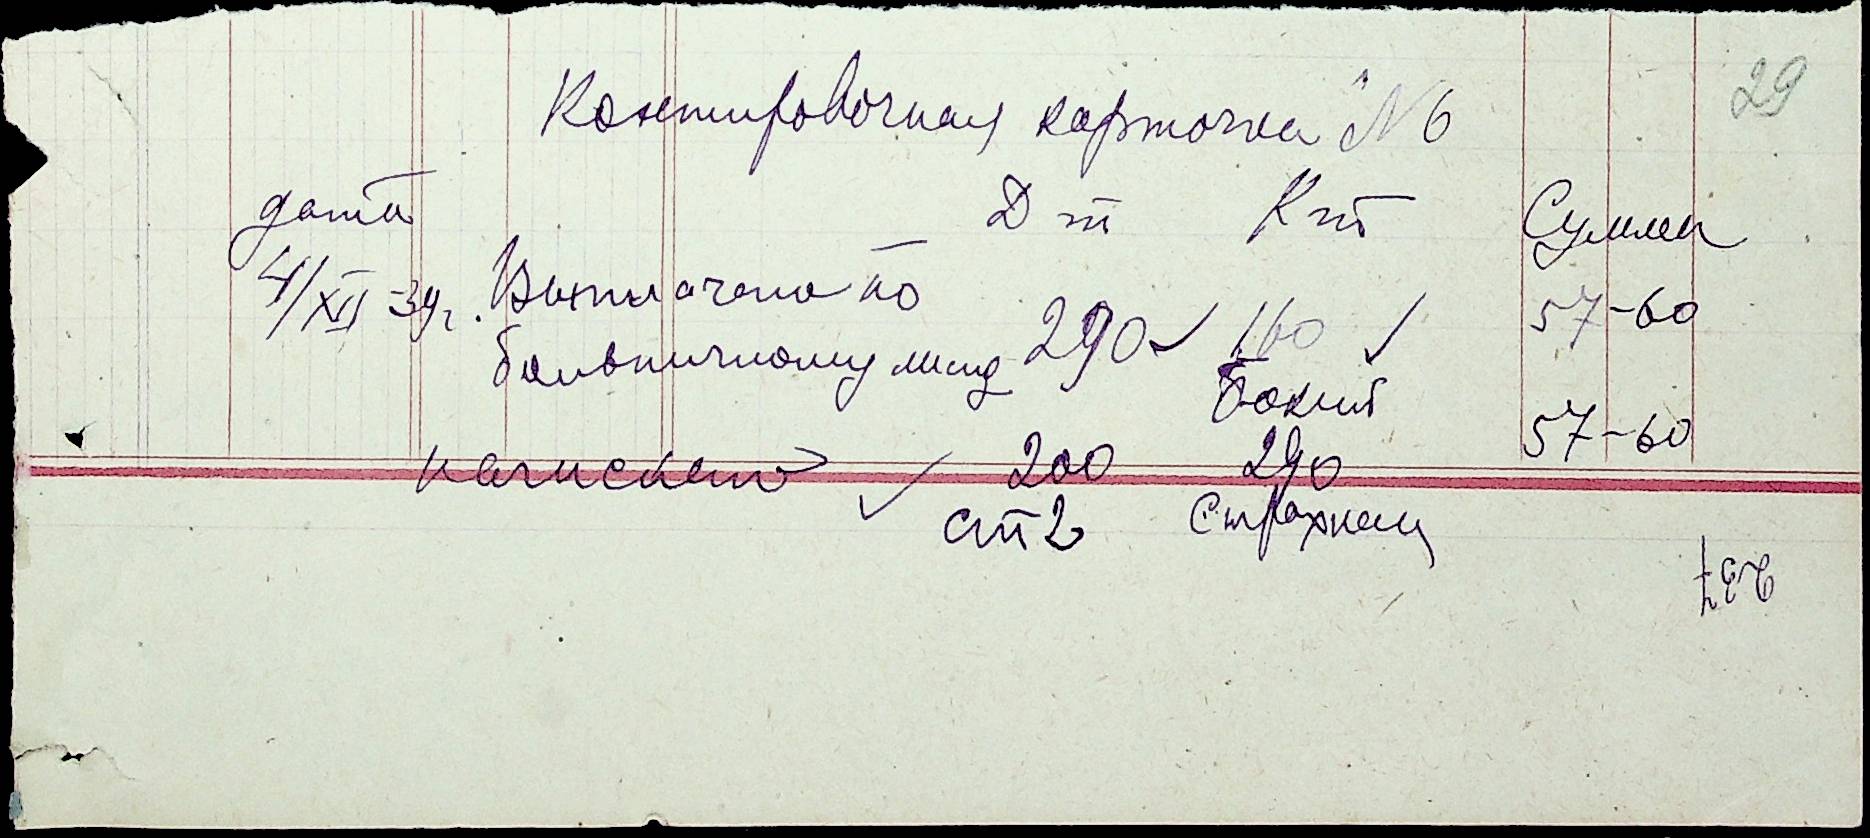 29
Контировочная карточка № 6
дата Дт Кт Сумма
4/XII-39г. Выплачено по 290 160 57-60
больничному листу Бокий 57-60
начислено 200 290
ст 2 Страхкасц